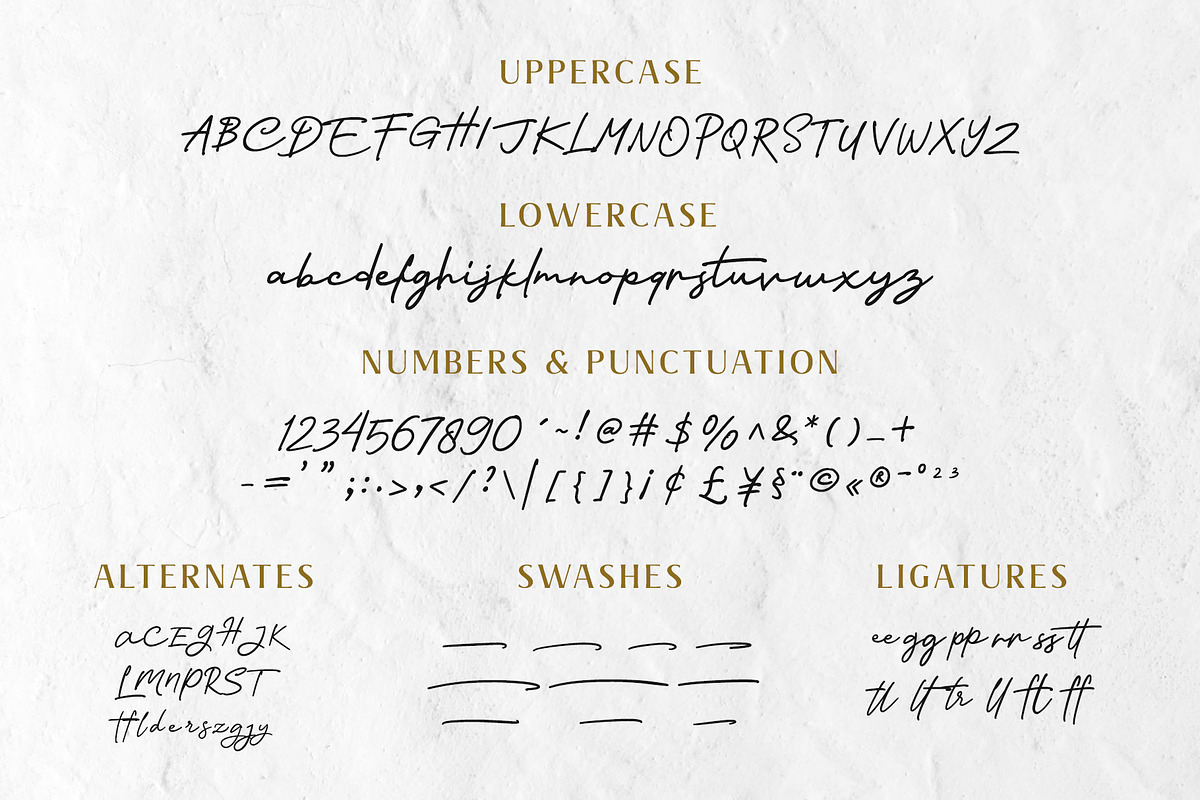 UPPERCASE
ABCDEFGHIJKLMNOPQRSTUVWXYZ
LOWERCASE
abcdefghijklmnopqrstuvwxyz
NUMBERS & PUNCTUATION
1234567890 ´~!@#$%^&*()_+
-='";:.>,</?\|[{]}¡¢£¥§¨©«®¯°²³
ALTERNATES
aCEGHJK
LMnPRST
tflderszgjy
SWASHES
LIGATURES
ee gg pp rr ss tt
tl lt tr ll ft ff